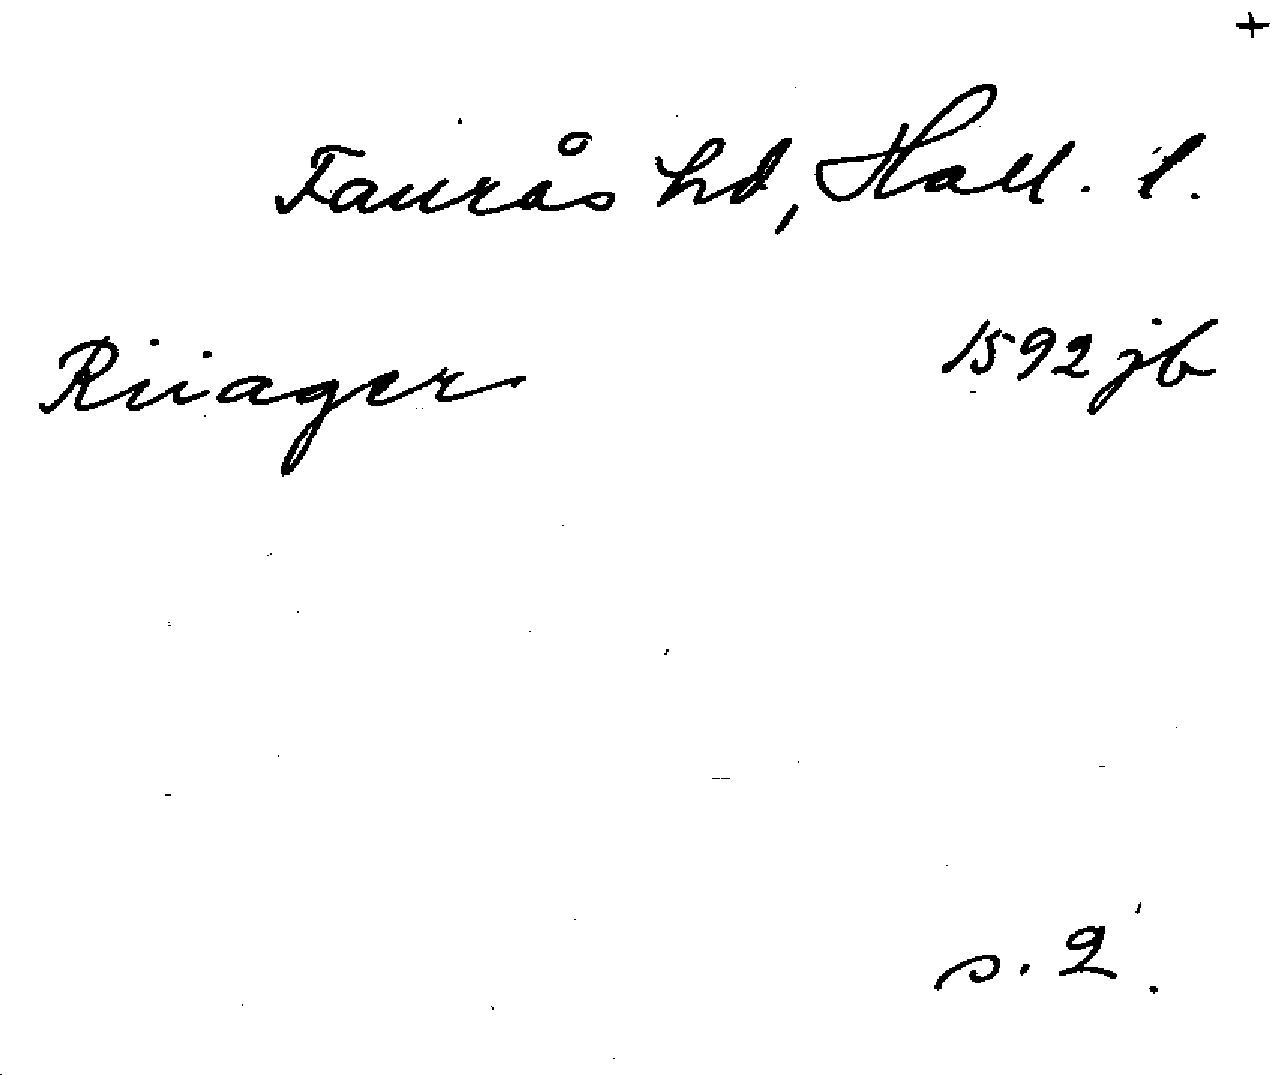 +
Faurås hd, Hall. l.
Riiager 1592 jb
s. 2.